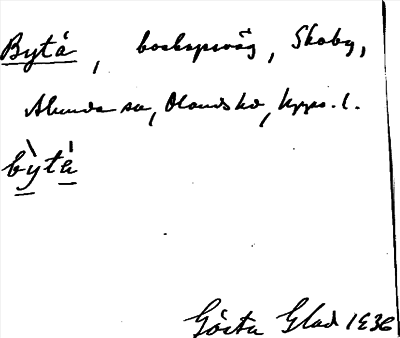 Bytå, boskapsväg, Skoby,
Alunda sn, Olands hd, Upps. l.
bỳtá
Gösta Glad 1936